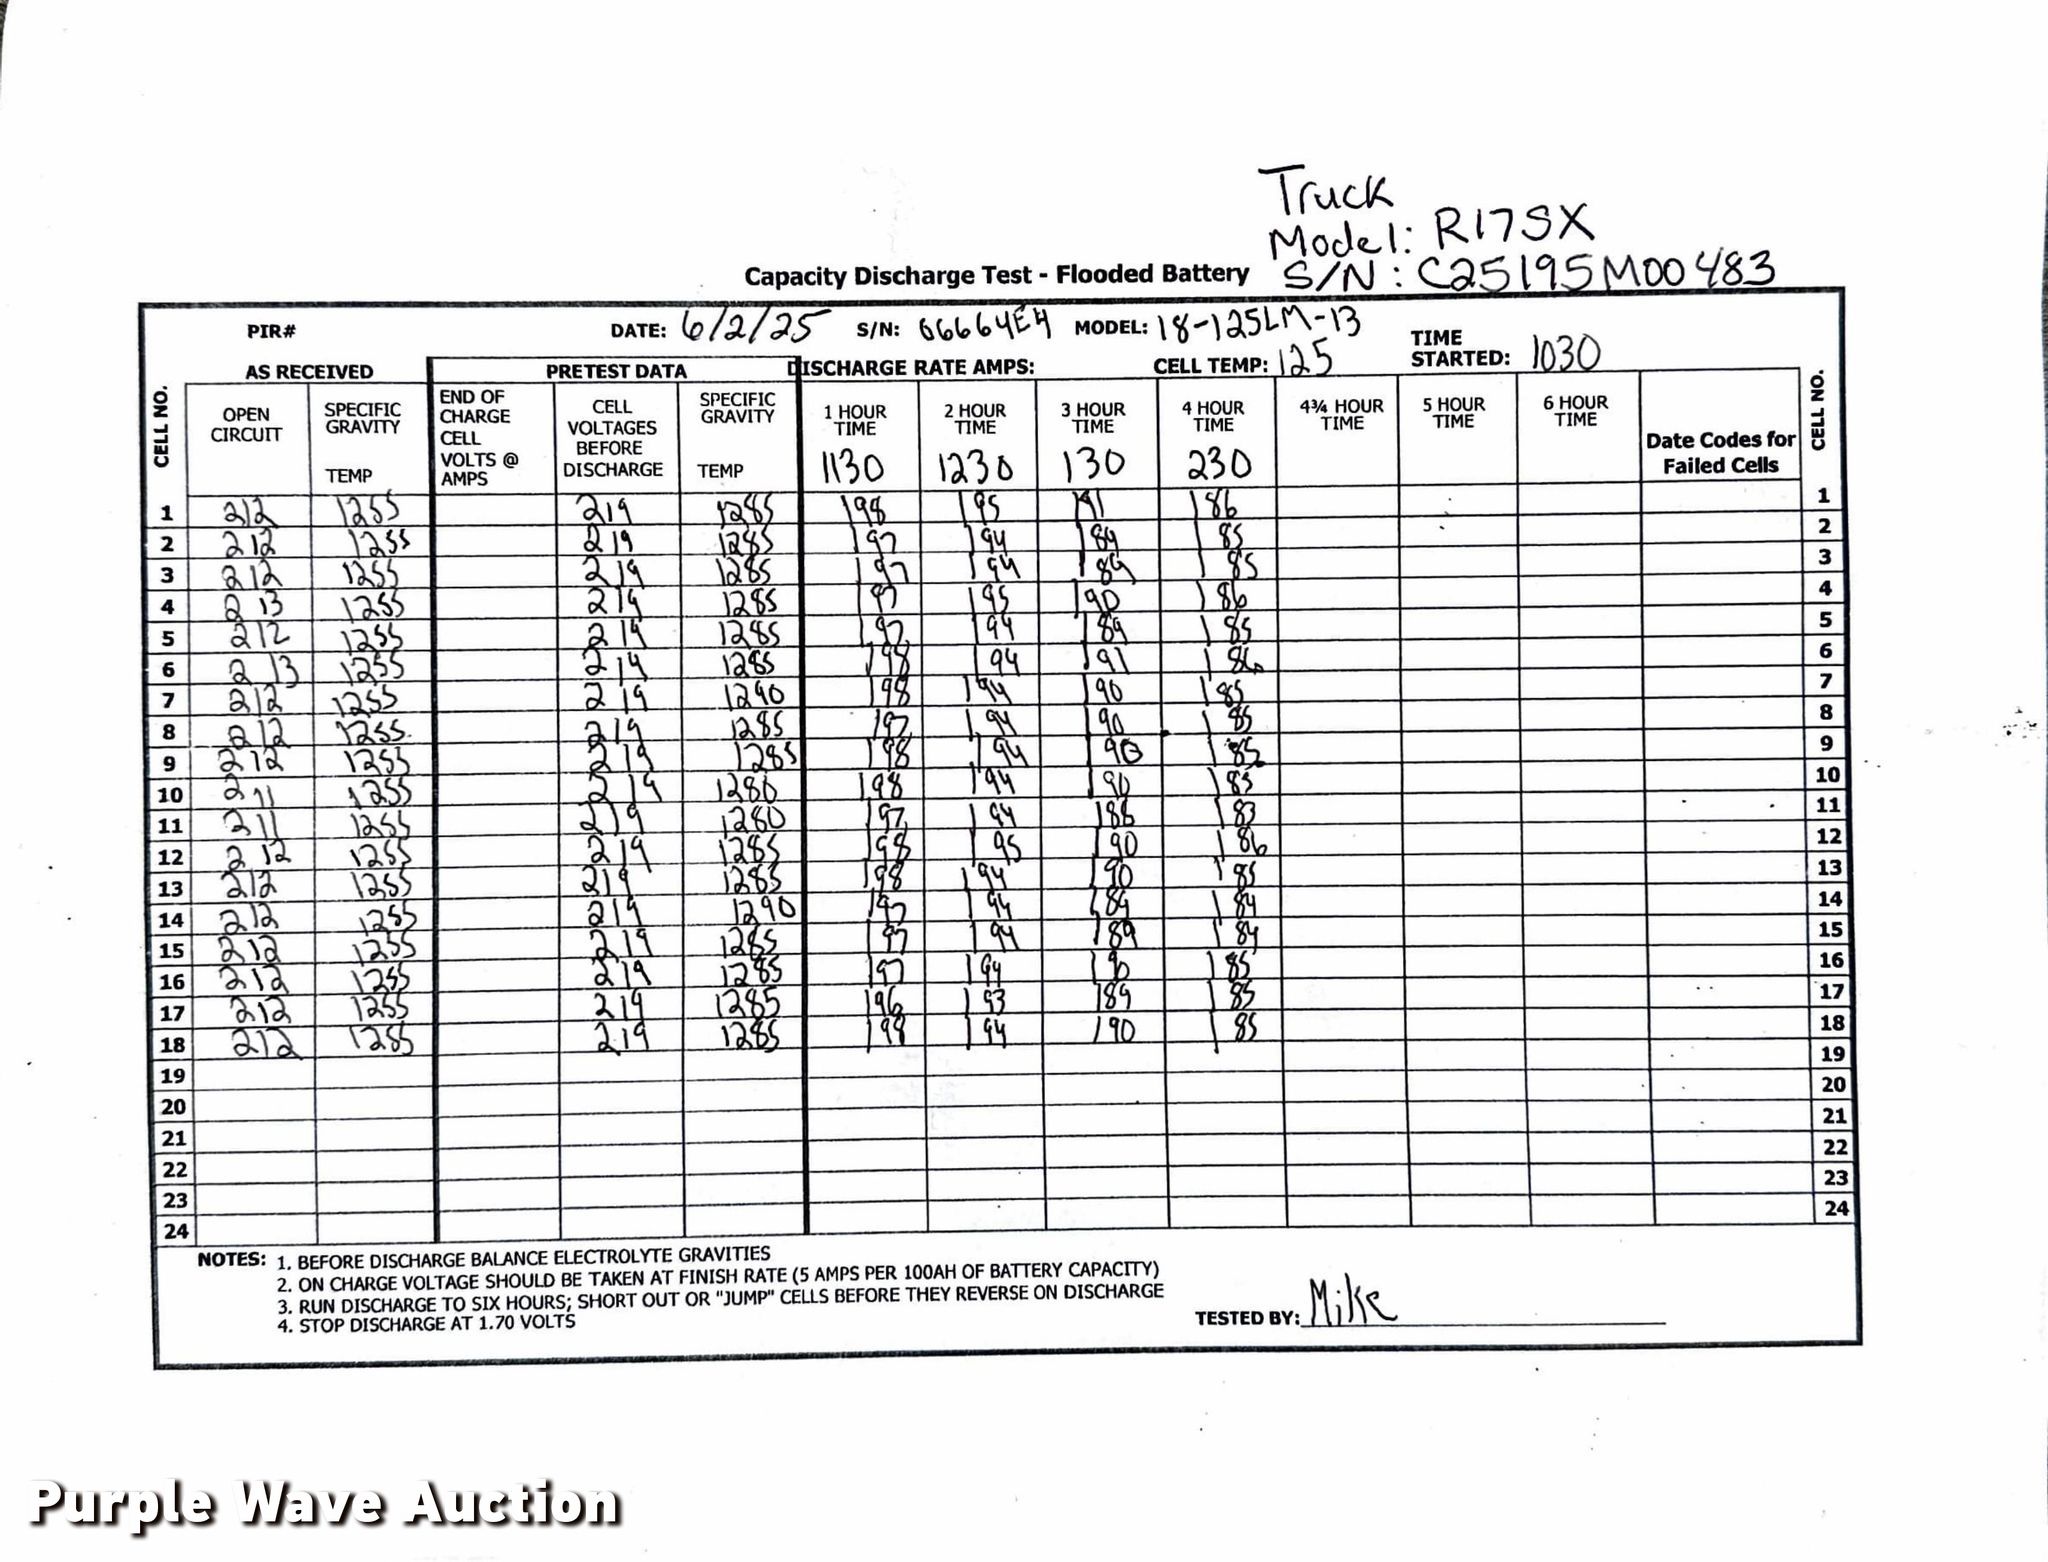 Truck
Model: R17SX
S/N: C25195M00483
Capacity Discharge Test - Flooded Battery
PIR# DATE: 6/2/25 S/N: G6664EH MODEL: 18-125LM-13 TIME STARTED: 1030
AS RECEIVED PRETEST DATA DISCHARGE RATE AMPS: CELL TEMP: 125
CELL NO. OPEN CIRCUIT SPECIFIC GRAVITY TEMP END OF CHARGE CELL VOLTS @ AMPS CELL VOLTAGES BEFORE DISCHARGE SPECIFIC GRAVITY TEMP 1 HOUR TIME 1130 2 HOUR TIME 1230 3 HOUR TIME 130 4 HOUR TIME 230 4¾ HOUR TIME 5 HOUR TIME 6 HOUR TIME Date Codes for Failed Cells CELL NO.
1 212 1255 219 1285 198 195 191 186 1
2 212 1255 219 1285 197 194 189 185 2
3 212 1255 219 1285 197 194 189 185 3
4 213 1255 219 1285 197 195 190 186 4
5 212 1255 219 1285 197 194 189 185 5
6 213 1255 219 1285 198 194 191 186 6
7 212 1255 219 1290 198 194 190 185 7
8 212 1255 219 1285 197 194 190 185 8
9 212 1255 219 1285 198 194 190 185 9
10 211 1255 219 1280 198 194 190 185 10
11 211 1255 219 1280 197 194 188 183 11
12 212 1255 219 1285 198 195 190 186 12
13 212 1255 219 1285 198 194 190 185 13
14 212 1255 219 1290 197 194 189 184 14
15 212 1255 219 1285 197 194 189 184 15
16 212 1255 219 1285 197 194 190 185 16
17 212 1255 219 1285 196 193 189 185 17
18 212 1255 219 1285 198 194 190 185 18
19 19
20 20
21 21
22 22
23 23
24 24
NOTES: 1. BEFORE DISCHARGE BALANCE ELECTROLYTE GRAVITIES
2. ON CHARGE VOLTAGE SHOULD BE TAKEN AT FINISH RATE (5 AMPS PER 100AH OF BATTERY CAPACITY)
3. RUN DISCHARGE TO SIX HOURS; SHORT OUT OR "JUMP" CELLS BEFORE THEY REVERSE ON DISCHARGE
4. STOP DISCHARGE AT 1.70 VOLTS
TESTED BY: Mike
Purple Wave Auction